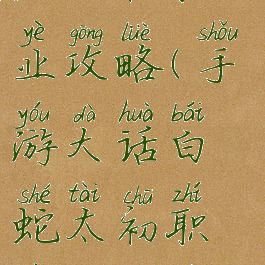 yè gōng lüè shǒu
业攻略(手
yóu dà huà bái
游大话白
shé tài chū zhí
蛇太初职